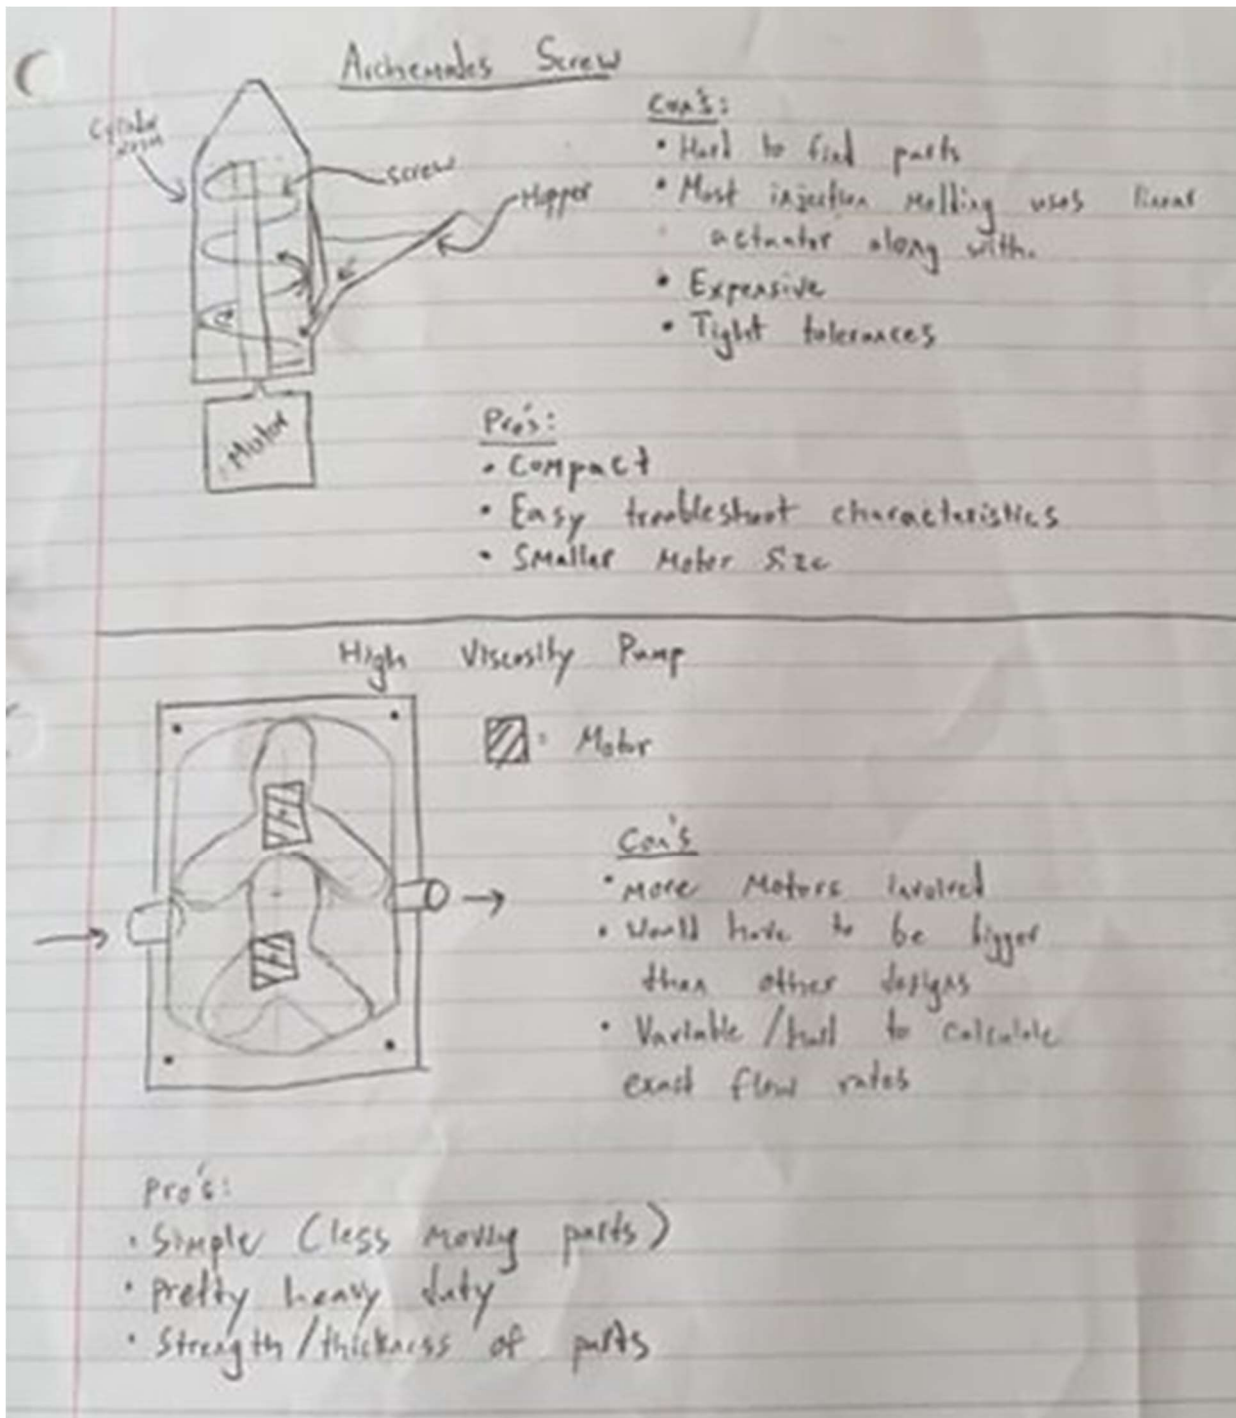 Archemades Screw
Cylinder
screw
Hopper
Motor
Con's:
• Hard to find parts
• Most injection molding uses linear
actuator along with.
• Expensive
• Tight tolerances
Pro's:
• Compact
• Easy troubleshoot characteristics
• Smaller Motor Size
High Viscosity Pump
= Motor
Con's
• More Motors involved
• Would have to be bigger
than other designs
• Variable/hard to calculate
exact flow rates
Pro's:
• Simple (less moving parts)
• Pretty heavy duty
• Strength/thickness of parts